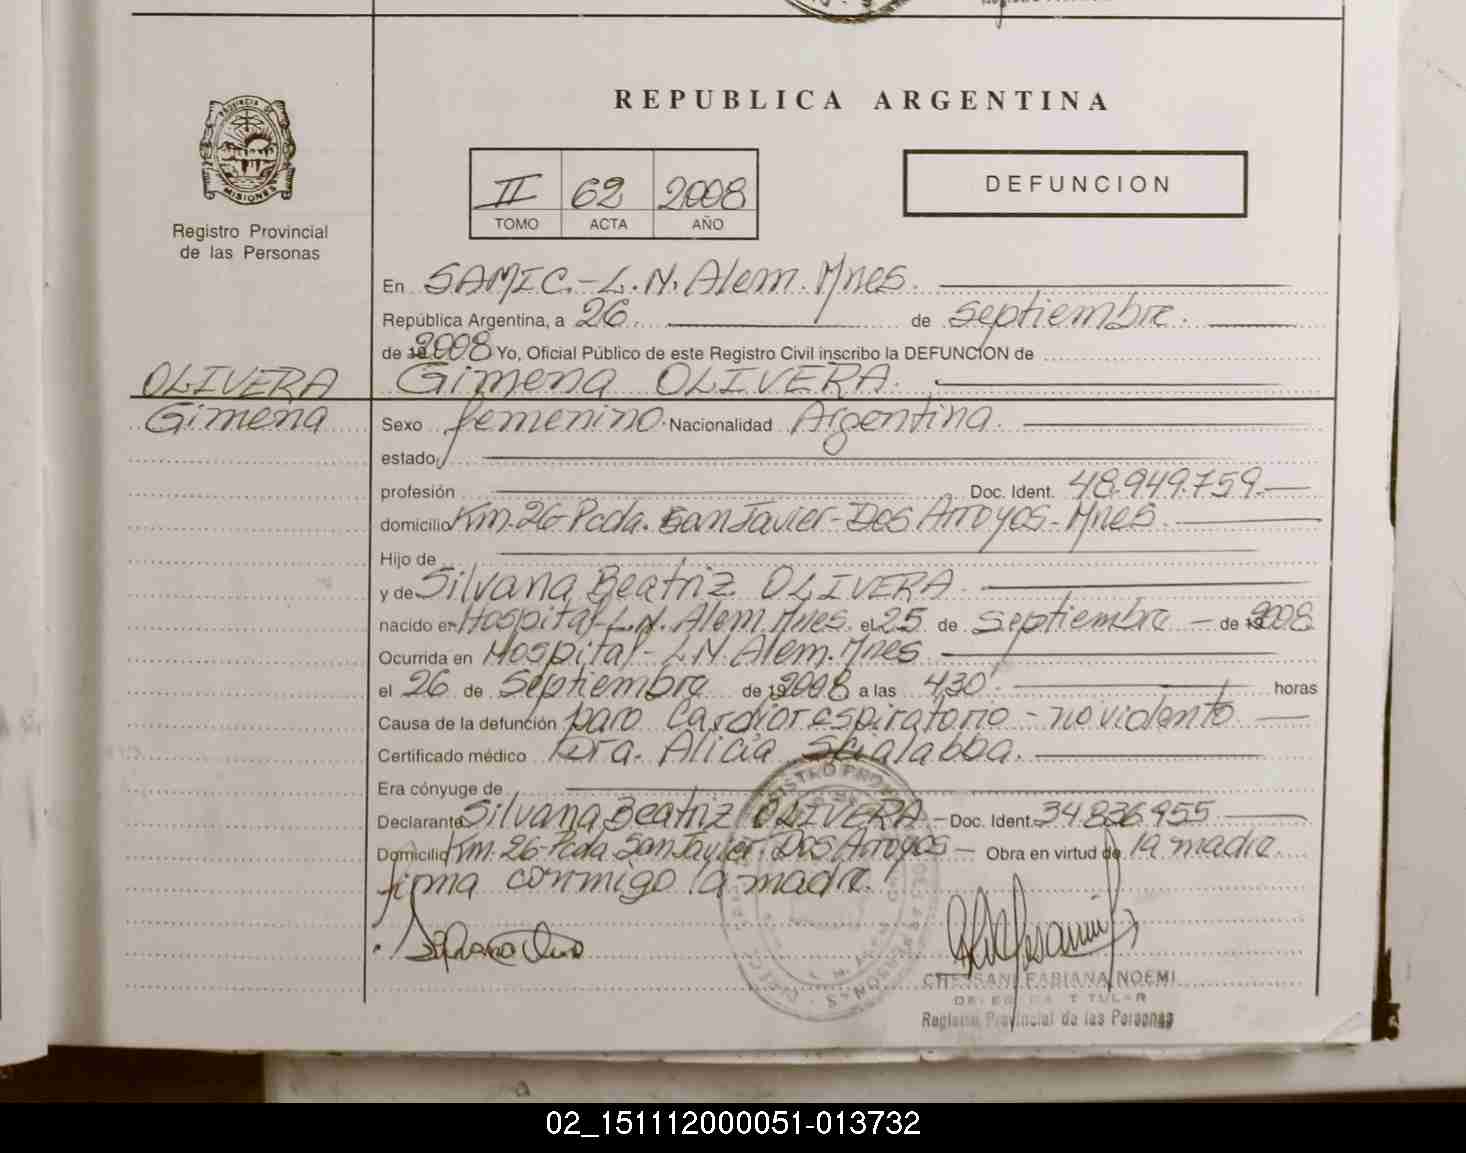 REPUBLICA ARGENTINA
PROVINCIA DE
MISIONES
Registro Provincial
de las Personas
II 62 2008
TOMO ACTA AÑO
DEFUNCION
En SAMIC.-L.N.Alem.Mnes.
República Argentina, a 26 de septiembre.
de 2008 Yo, Oficial Público de este Registro Civil inscribo la DEFUNCION de
OLIVERA Gimena OLIVERA.
Gimena Sexo femenino. Nacionalidad Argentina.
estado
profesión Doc. Ident. 48.949.759.
domicilio Km.26-Pcda. San Javier-Dos Arroyos-Mnes
Hijo de
y de Silvana Beatriz OLIVERA.
nacido en Hospital-L.N.Alem.Mnes. el 25 de septiembre - de 2008
Ocurrida en Hospital-L.N.Alem.Mnes
el 26 de septiembre de 2008 a las 430' horas
Causa de la defunción paro Cardiorespiratorio - no violento
Certificado médico Dra. Alicia Scialabba.
Era cónyuge de
Declarante Silvana Beatriz OLIVERA - Doc. Ident. 34.836.955
Domicilio Km.26-Pcda San Javier.Dos Arroyos - Obra en virtud de la madre.
firma conmigo la madre.
FABIANA NOEMI
TITULAR
Registro Provincial de las Personas
02_151112000051-013732